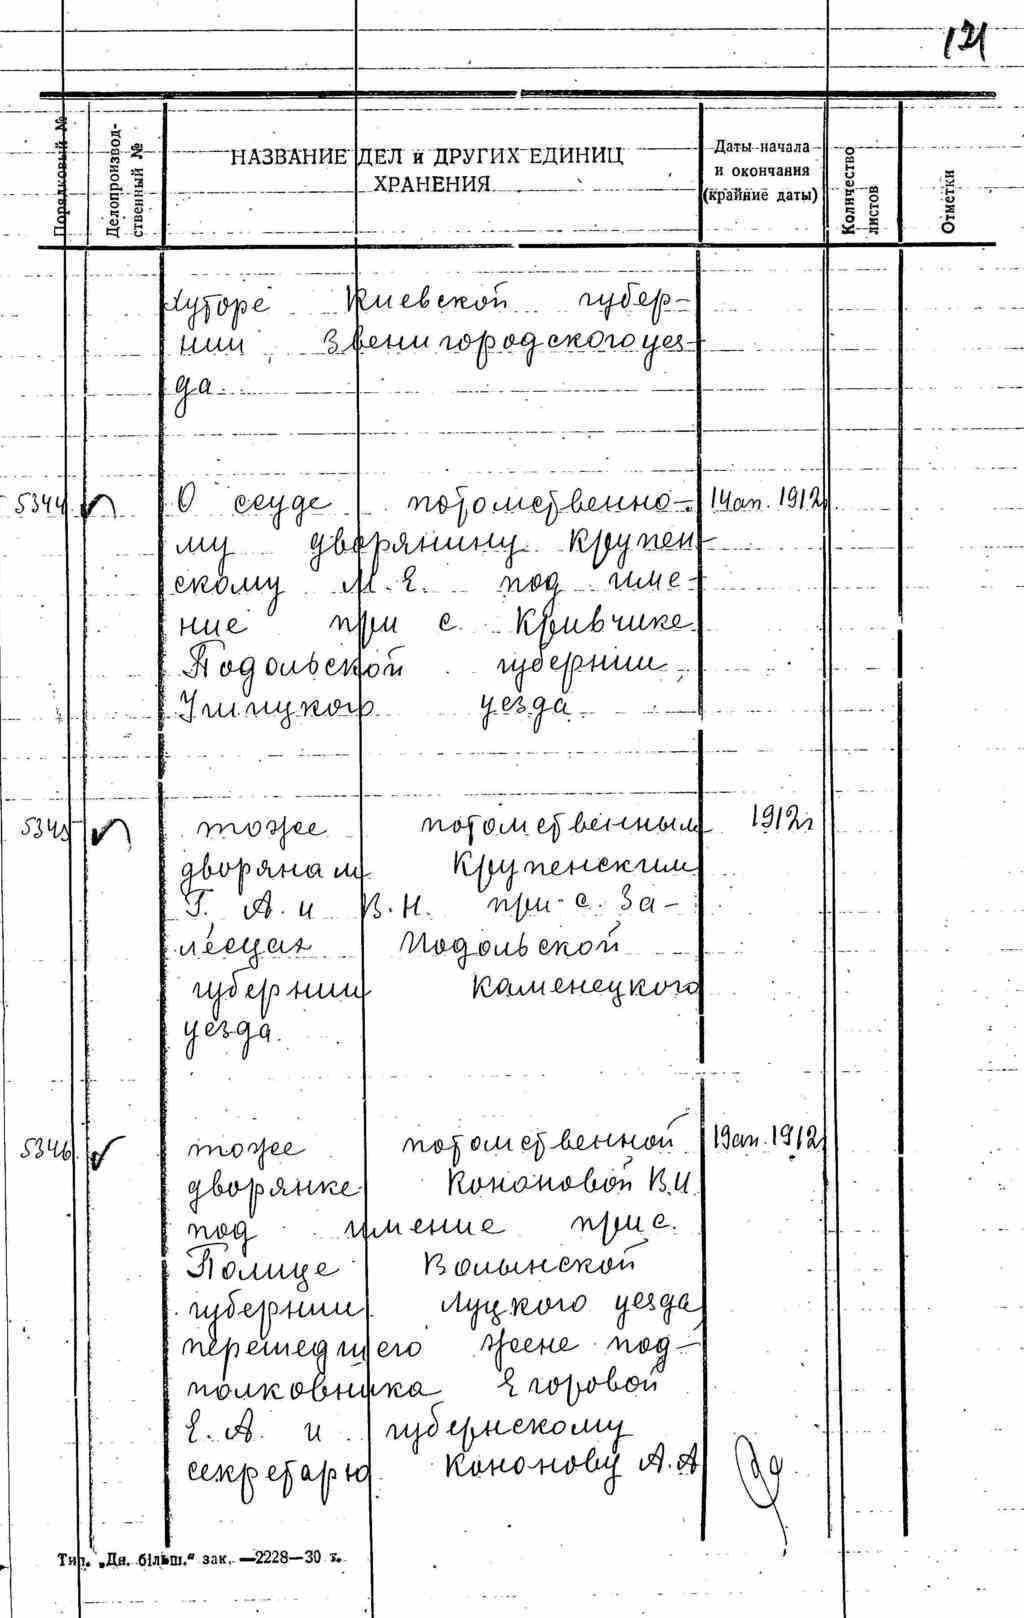 121
Порядковый №
Делопроизвод-
ственный №
НАЗВАНИЕ ДЕЛ и ДРУГИХ ЕДИНИЦ
ХРАНЕНИЯ
Даты начала
и окончания
(крайние даты)
Количество
листов
Отметки
хуторе Киевской губер-
нии Звенигородского уез-
да.
5344 О ссуде потомственно- 14 ап. 1912г
му дворянину Крупен-
скому М.Е. под име-
ние при с. Кривчике
Подольской губернии,
Ушицкого уезда
5345 тоже потомственным 1912г
дворянам Крупенским
Г. А. и В.Н. при с. За-
лесцах Подольской
губернии Каменецкого
уезда.
5346 тоже потомственной 19 ап. 1912г
дворянке Кононовой В.И.
под имение при с.
Полице Волынской
губернии Луцкого уезда
перешедшего жене под-
полковника Егоровой
Е.А. и губернскому
секретарю Кононову А.А
Тип. „Дн. більш.“ зак. —2228—30 т.